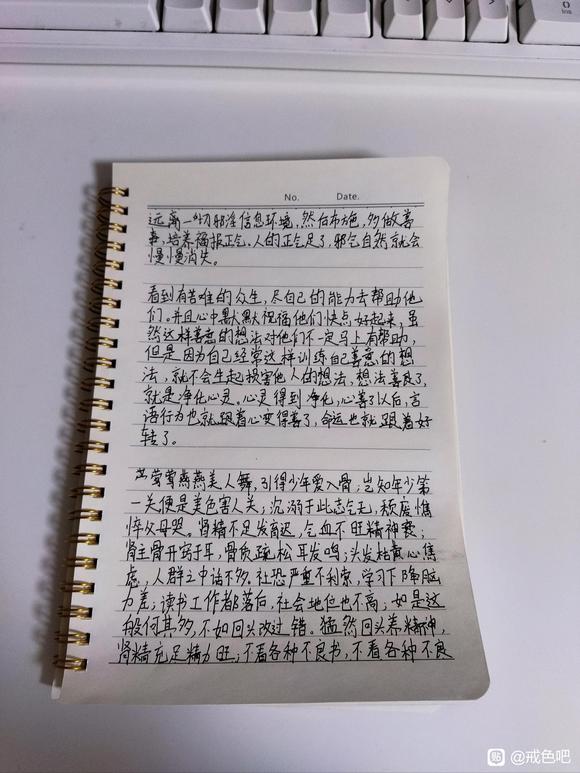 No. Date.
远离一切邪淫信息环境，然后布施，多做善
事，培养福报正气。人的正气足了，邪气自然就会
慢慢消失。
看到有苦难的众生，尽自己的能力去帮助他
们。并且心中默默祝福他们快点好起来，虽
然这样善意的想法对他们不一定马上有帮助，
但是因为自己经常这样训练自己善意的想
法，就不会生起损害他人的想法，想法善良了，
就是净化心灵。心灵得到净化，心善了以后，言
语行为也就跟着心变得善了，命运也就跟着好
转了。
莺莺燕燕美人舞，引得少年爱入骨；岂知年少第
一关，便是美色害人关；沉溺于此志气无，颓废憔
悴父母哭。肾精不足发育迟，气血不旺精神衰；
肾主骨开窍于耳，骨质疏松耳发鸣；头发枯黄心焦
虑，人群之中话不多。社恐严重不利索，学习下降脑
力差；读书工作都落后，社会地位也不高；如是这
般何其多，不如回头改过错。猛然回头养精神，
肾精充足精力旺；不看各种不良书，不看各种不良
贴 @戒色吧